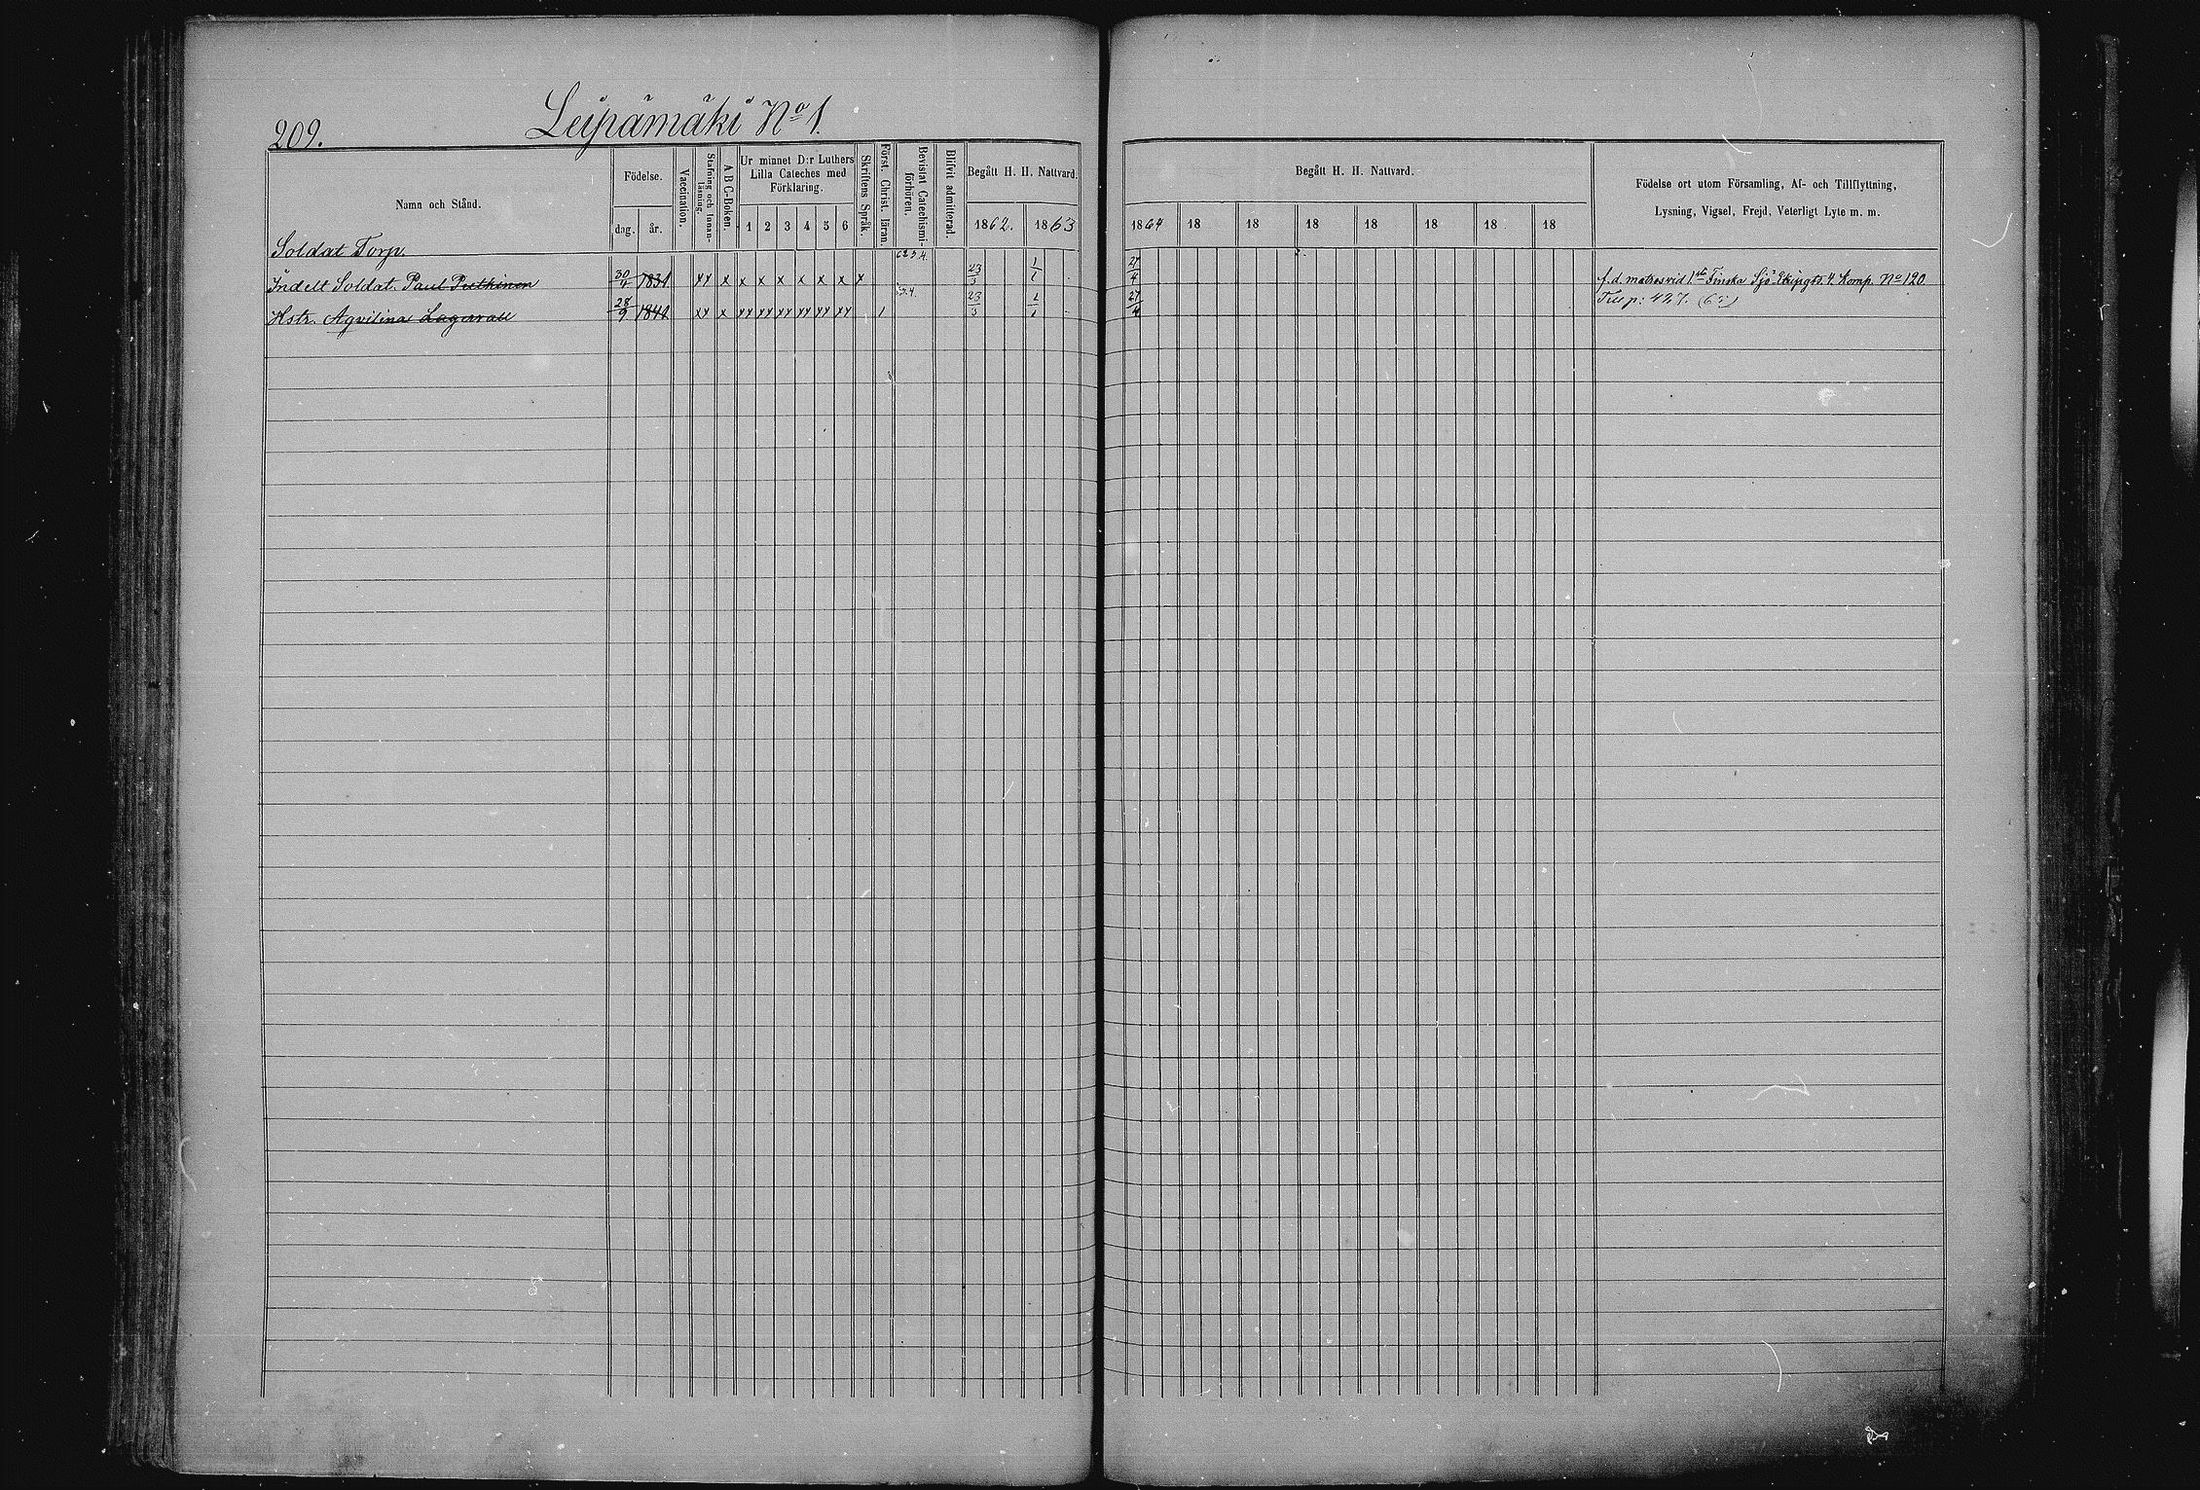 209.
Leipämäki No 1.
Namn och Stånd.
Födelse.
dag.
år.
Vaccination.
Stafning och Innanläsning.
A B C-Boken.
Ur minnet D:r Luthers
Lilla Cateches med
Förklaring.
1 2 3 4 5 6
Skriftens Språk.
Först. Christ. läran.
Bevistat Catechismi-
förhören.
Blifvit admitterad.
Begått H. H. Nattvard.
1862. 1863
Begått H. H. Nattvard.
1864 18 18 18 18 18 18 18
Födelse ort utom Församling, Af- och Tillflyttning,
Lysning, Vigsel, Frejd, Veterligt Lyte m. m.
Soldat Torp.
Indelt Soldat. Paul Puthinen 30/4 1831 xx x x x x x x x x 23/3 1/1 27/4 f. d. matros vid 1sta Finska Sjö Ekipagts. 4. Komp. No 120
Hstr. Agvilina Lagervall 28/9 xx x xx xx xx xx xx xx 1 23/3 1/1 27/4 Trsp: 427.